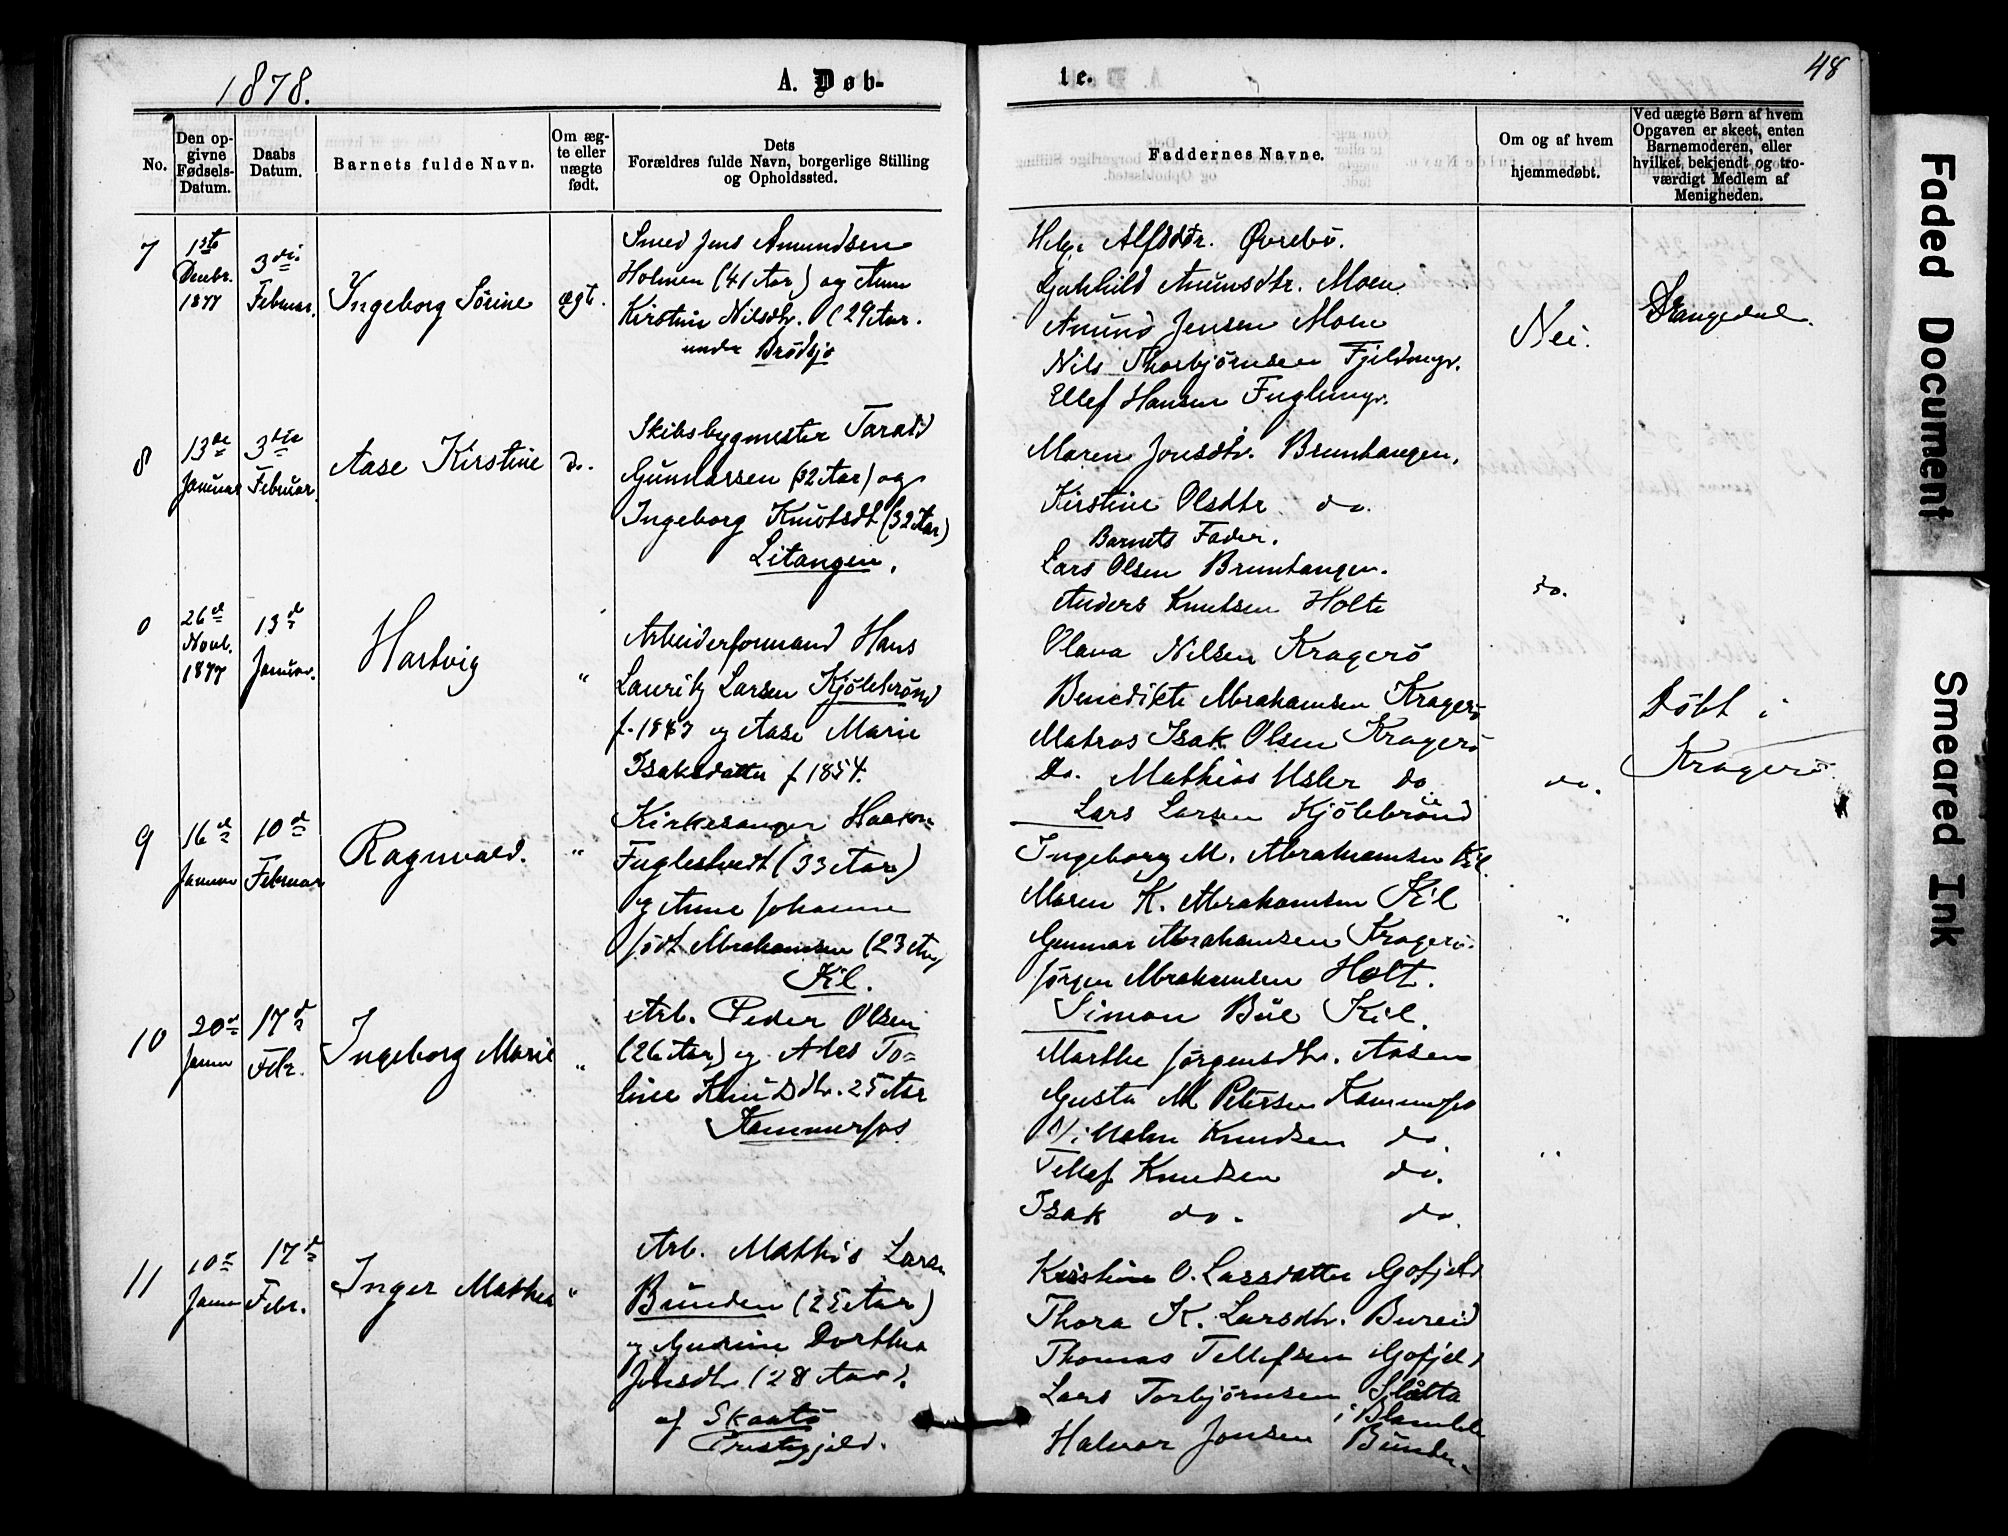 1878.
A. Døb-
te.
48
No.
Den op-
givne
Fødsels-
Datum.
Daabs
Datum.
Barnets fulde Navn.
Om æg-
te eller
uægte
født.
Dets
Forældres fulde Navn, borgerlige Stilling
og Opholdssted.
Faddernes Navne.
Om og af hvem
hjemmedøbt.
Ved uægte Børn af hvem
Opgaven er skeet, enten
Barnemoderen, eller
hvilket bekjendt og tro-
værdigt Medlem af
Menigheden.
7
1ste
Decbr.
1877
3die
Februar.
Ingeborg Sørine
ægt.
Smed Jens Amundsen
Holmen (41 Aar) og Anne
Kirstine Nilsdtr. (29 Aar.
under Brødsjø
Alfsdtr. Øvrebø.
Gunhild Anunsdtr. Moen.
Anund Jensen Moen
Nils Thorbjørnsen
Ellef Hansen
Nei.
Drangedal.
8
13de
Januar
3die
Februar.
Aase Kirstine
do.
Skibsbygmester Tarald
Gunnarsen (32 Aar) og
Ingeborg Knutsdt (32 Aar)
Litangen.
Maren Jonsdtr. Bruntangen.
Kirstine Olsdtr do.
Barnets Fader.
Lars Olsen Bruntangen.
Anders Knutsen Holte
do.
0
26d
Novb.
1877
13d
Januar.
Hartvig
"
Arbeiderformand Hans
Lauritz Larsen Kjölebrönd
f. 1847 og Aase Marie
Isaksdatter f 1854.
Olava Nilsen Kragerö
Benedikte Abrahamsen Kragerö
Matros Isak Olsen Kragerö
Do. Mathias Usler do
Lars Larsen Kjölebrönd
do.
Döbt i
Kragerö
9
16d
Januar
10d
Februar
Ragnvald.
"
Kirkesanger Haakon
Fuglestvedt (33 Aar)
og Anne Johanne
født Abrahamsen (23 Aar)
Kil.
Ingeborg M. Abrahamsen Kil.
Maren K. Abrahamsen Kil
Gunnar Abrahamsen Kragerö.
Jørgen Abrahamsen Holt.
Simon Bøe Kil.
"
10
20d
Januar
17d
Febr.
Ingeborg Marie
"
Arb. Peder Olsen
(26 Aar) og Ales To-
line Knudsdtr. 25 Aar
Kammerfos
Marthe Jørgensdtr. Aasen
Gusta M Petersen Kammerfos
Vilhelm Knudsen do.
Tellef Knudsen do.
Isak do. do.
"
11
10d
Januar
17d
Febr.
Inger Mathea
"
Arb. Mathis Larsen
Bunden (25 Aar)
og Gurine Dorthea
Jonsdtr (28 Aar).
af Skaatø
Præstegjeld.
Kirstine O. Larsdatter Gofjeld
Thora K. Larsdtr. Bureid
Thomas Tellefsen Gofjeld
Lars Torbjørnsen Slåtta
i Bamble
Halvor Jonsen Bunden
Faded Document
Smeared Ink